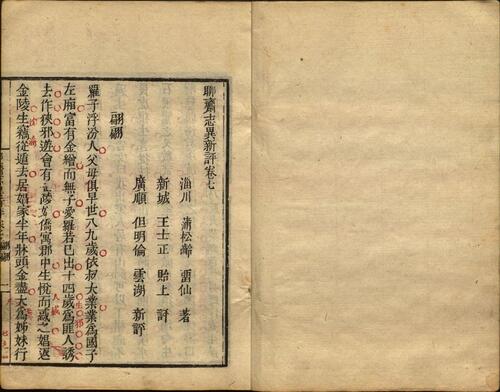 聊齋志異新評卷七
淄川 蒲松齡 留仙 著
新城 王士正 貽上 評
廣順 但明倫 雲湖 新評
翩翩
羅子浮汾人父母俱早世八九歲依叔大業業爲國子
左廂富有金繒而無子愛羅若已出十四歲爲匪人誘
去作狹邪遊會有金陵娼僑寓郡中生悅而惑之娼返
金陵生竊從遁去居娼家半年牀頭金盡大爲姊妹行
翩翩